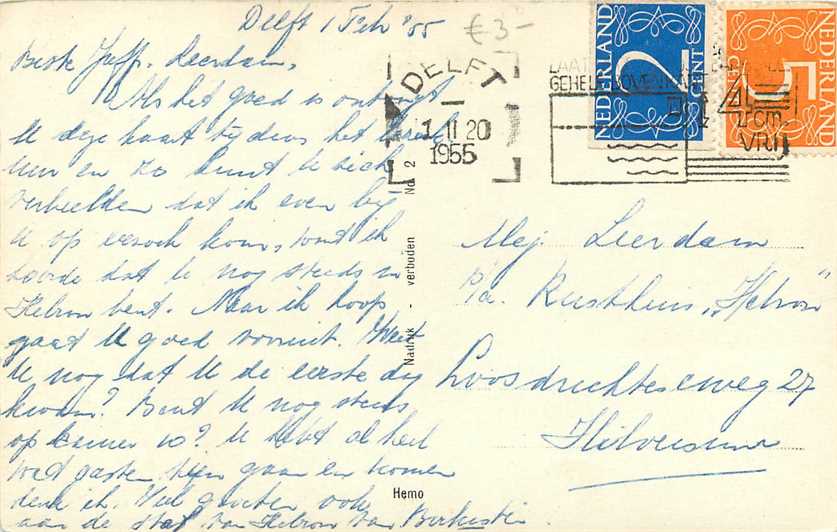 Delft 1 Feb '55
€3-
Beste Juffr. Leerdam,
Als het goed is ontvangt
U deze kaart tijdens het
uur en zo kunt U zich
verbeelden dat ik even bij
U op bezoek kom, want ik
hoorde dat U nog steeds in
Hebron bent. Maar ik hoop
gaat U goed vooruit. Weet
U nog dat U de eerste dag
kwam? Bent U nog steeds
op kamer 10? U hebt al heel
wat gasten zien gaan en komen
denk ik. Veel groeten ook
aan de staf van Hebron van
DELFT
1 II 20
1955
GEHEEL BOVEN
4
VRIJ
NEDERLAND
2
CENT
NEDERLAND
5
CENT
Nadruk - verboden No. 2
Hemo
Mej. Leerdam
P/a. Rusthuis „Hebron"
Loosdrechtseweg 27
Hilversum